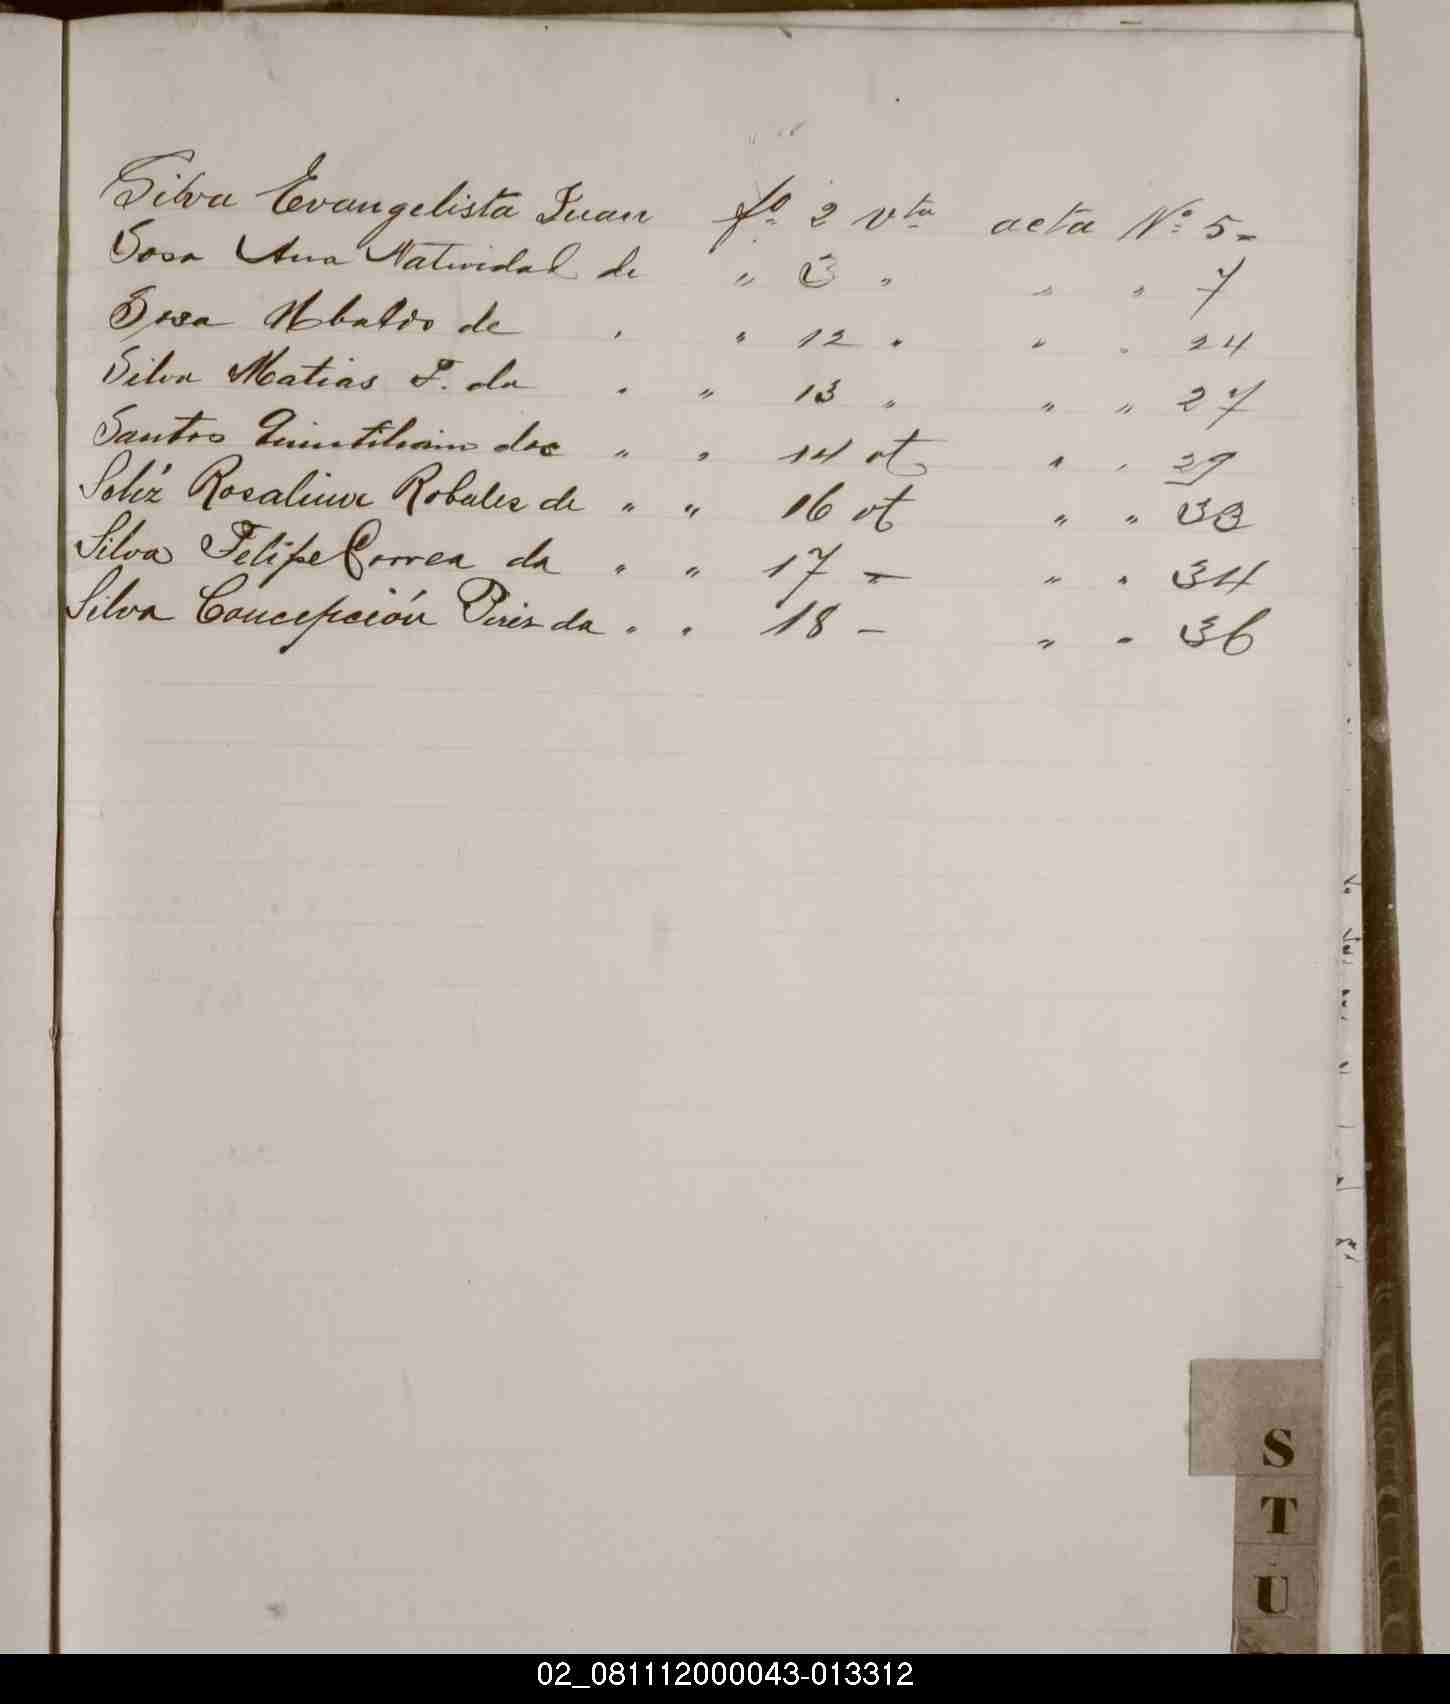 Silva Evangelista Juan fº 2 vta acta Nº 5-
Sosa Ana Natividad de " 3 " " " 7
Sosa Ubaldo de " " 12 " " " 24
Silva Matias F. da " " 13 " " " 27
Santos Quintiliam dos " " 14 vt " " 29
Soliz Rosalina Robales de " " 16 vt " " 33
Silva Felipe Correa da " " 17 - " " 34
Silva Concepción Piriz da " " 18 - " " 36
S
T
U
02_081112000043-013312